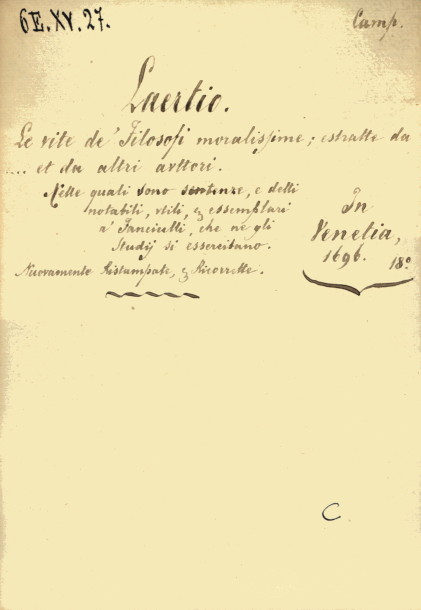 6E.XV.27.
Camp.
Laertio.
Le vite de' Filosofi moralissime; estratte da
... et da altri avttori.
Nelle quali sono sentenze, e detti
notabili, vtili, & essemplari
a' Fanciulli, che ne gli
Studij si essercitano.
Nuovamente Ristampate, & Ricorrette.
In
Venetia,
1696.
18º
C